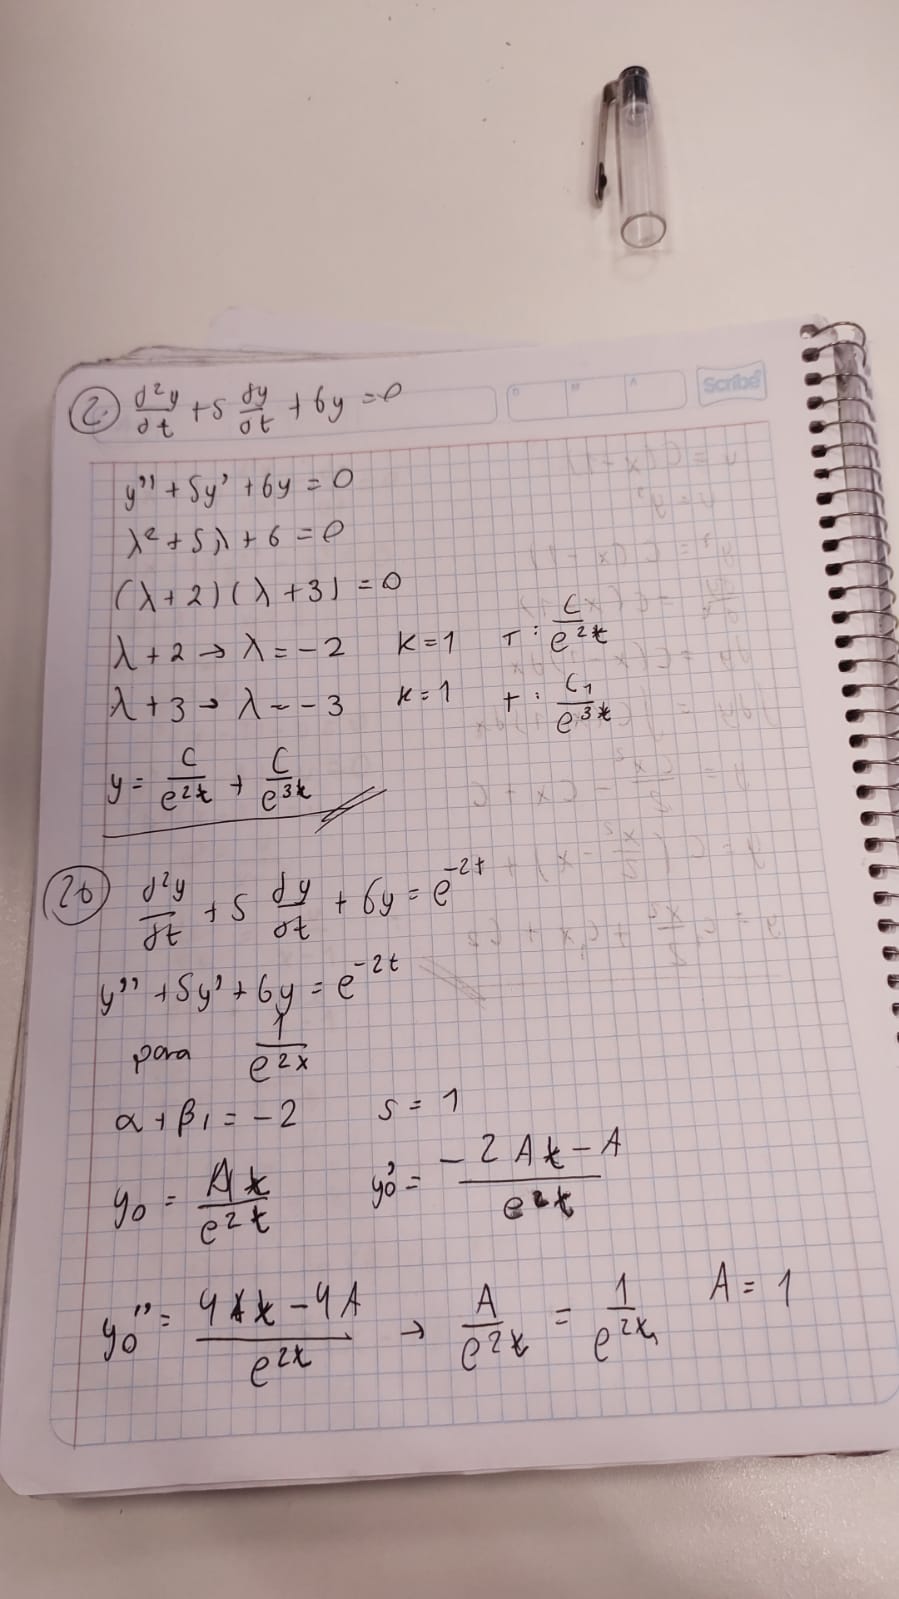 Scribe
2. d²y/dt + 5 dy/dt + 6y = 0
y'' + 5y' + 6y = 0
λ² + 5λ + 6 = 0
(λ + 2)(λ + 3) = 0
λ + 2 → λ = -2 K = 1 T: C/e^2t
λ + 3 → λ = -3 K = 1 T: C₁/e^3t
y = C/e^2t + C/e^3t
2b d²y/dt + 5 dy/dt + 6y = e^-2t
y'' + 5y' + 6y = e^-2t
para 1/e^2x
α + βi = -2 S = 1
y₀ = At/e^2t y₀' = -2At - A/e^2t
y₀'' = 4At - 4A/e^2t → A/e^2t = 1/e^2t, A = 1